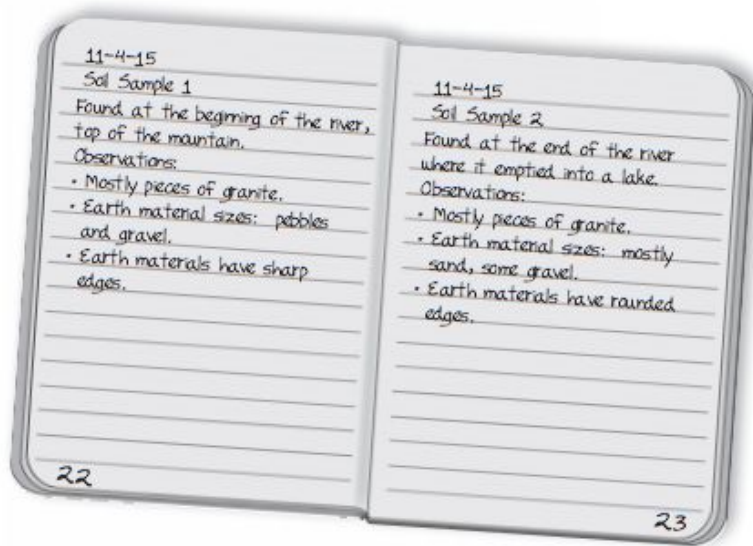 11-4-15
Soil Sample 1
Found at the beginning of the river,
top of the mountain.
Observations:
• Mostly pieces of granite.
• Earth material sizes: pebbles
and gravel.
• Earth materials have sharp
edges.
22
11-4-15
Soil Sample 2
Found at the end of the river
where it emptied into a lake.
Observations:
• Mostly pieces of granite.
• Earth material sizes: mostly
sand, some gravel.
• Earth materials have rounded
edges.
23